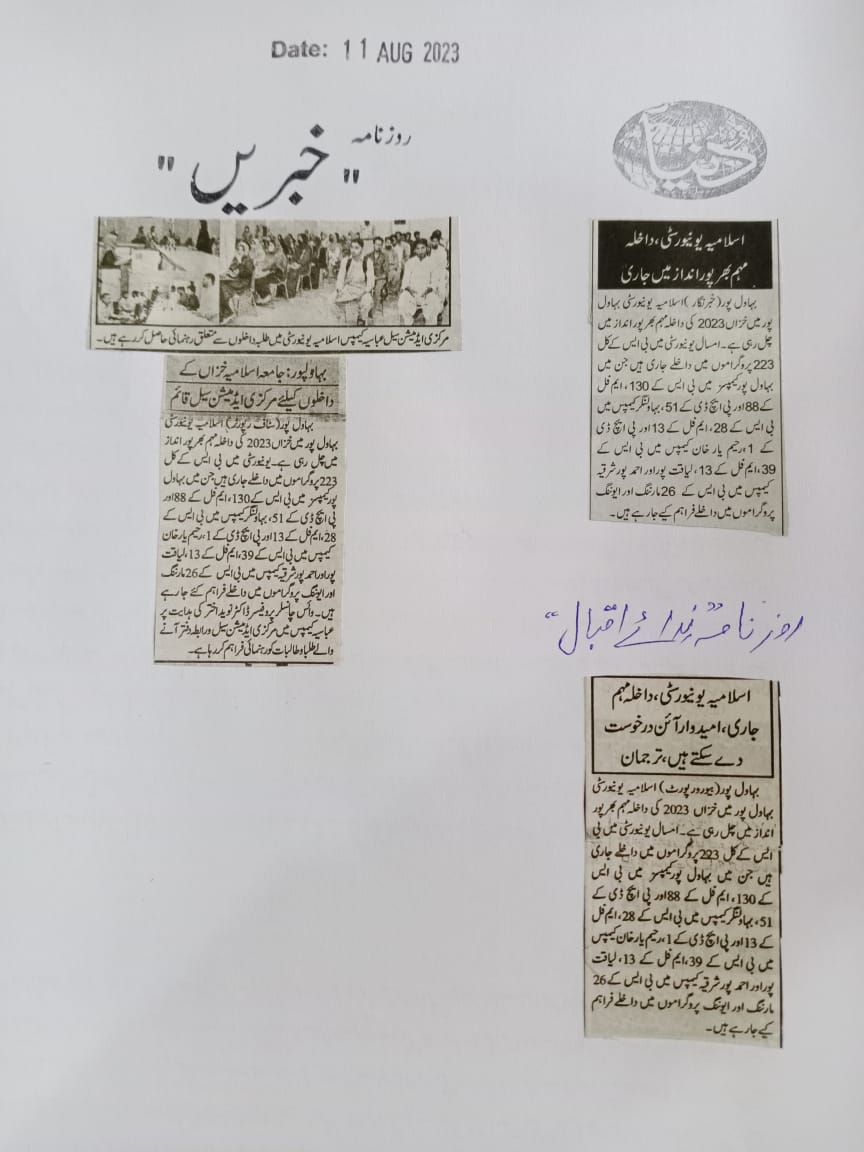 Date: 11 AUG 2023
روزنامہ
"خبریں"
مرکزی ایڈمیشن سیل عباسیہ کیمپس اسلامیہ یونیورسٹی میں طلبہ داخلوں سے متعلق رہنمائی حاصل کر رہے ہیں۔
بہاولپور: جامعہ اسلامیہ خزاں کے
داخلوں کیلئے مرکزی ایڈمیشن سیل قائم
بہاول پور (سٹاف رپورٹر) اسلامیہ یونیورسٹی
بہاول پور میں خزاں 2023 کی داخلہ مہم بھرپور انداز
میں چل رہی ہے۔ یونیورسٹی میں بی ایس کے کل
223 پروگراموں میں داخلے جاری ہیں جن میں بہاول
پور کیمپسز میں بی ایس کے 130، ایم فل کے 88 اور
پی ایچ ڈی کے 51، بہاولنگر کیمپس میں بی ایس کے
28، ایم فل کے 13 اور پی ایچ ڈی کے 1، رحیم یار خان
کیمپس میں بی ایس کے 39، ایم فل کے 13، لیاقت
پور اور احمد پور شرقیہ کیمپس میں بی ایس کے 26 مارننگ
اور ایوننگ پروگراموں میں داخلے فراہم کئے جا رہے
ہیں۔ وائس چانسلر پروفیسر ڈاکٹر نوید اختر کی ہدایت پر
عباسیہ کیمپس میں مرکزی ایڈمیشن سیل و رابطہ دفتر آنے
والے طلبا و طالبات کو رہنمائی فراہم کر رہا ہے۔
دنیا
اسلامیہ یونیورسٹی، داخلہ
مہم بھرپور انداز میں جاری
بہاول پور (خبرنگار) اسلامیہ یونیورسٹی بہاول
پور میں خزاں 2023 کی داخلہ مہم بھرپور انداز میں
چل رہی ہے۔ امسال یونیورسٹی میں بی ایس کے کل
223 پروگراموں میں داخلے جاری ہیں جن میں
بہاول پور کیمپسز میں بی ایس کے 130، ایم فل
کے 88 اور پی ایچ ڈی کے 51، بہاولنگر کیمپس میں
بی ایس کے 28، ایم فل کے 13 اور پی ایچ ڈی
کے 1، رحیم یار خان کیمپس میں بی ایس کے
39، ایم فل کے 13، لیاقت پور اور احمد پور شرقیہ
کیمپس میں بی ایس کے 26 مارننگ اور ایوننگ
پروگراموں میں داخلے فراہم کیے جا رہے ہیں۔
روزنامہ "ندائے اقبال"
اسلامیہ یونیورسٹی، داخلہ مہم
جاری، امیدوار آئن درخوست
دے سکتے ہیں، ترجمان
بہاول پور (بیورو رپورٹ) اسلامیہ یونیورسٹی
بہاول پور میں خزاں 2023 کی داخلہ مہم بھرپور
انداز میں چل رہی ہے۔ امسال یونیورسٹی میں بی
ایس کے کل 223 پروگراموں میں داخلے جاری
ہیں جن میں بہاول پور کیمپسز میں بی ایس
کے 130، ایم فل کے 88 اور پی ایچ ڈی کے
51، بہاولنگر کیمپس میں بی ایس کے 28، ایم فل
کے 13 اور پی ایچ ڈی کے 1، رحیم یار خان کیمپس
میں بی ایس کے 39، ایم فل کے 13، لیاقت
پور اور احمد پور شرقیہ کیمپس میں بی ایس کے 26
مارننگ اور ایوننگ پروگراموں میں داخلے فراہم
کیے جا رہے ہیں۔